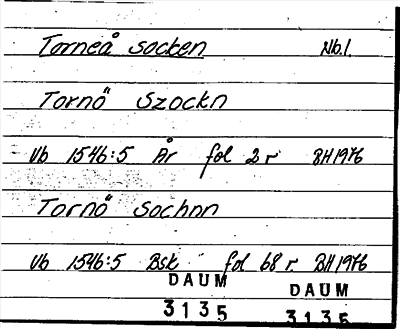 Torneå socken Nb.
Tornö Szockn
Vb 1546:5 År fol 2 r BH1976
Tornö Sochnn
Vb 1546:5 Bsk fol 68 r BH1976
DAUM DAUM
3135 3135